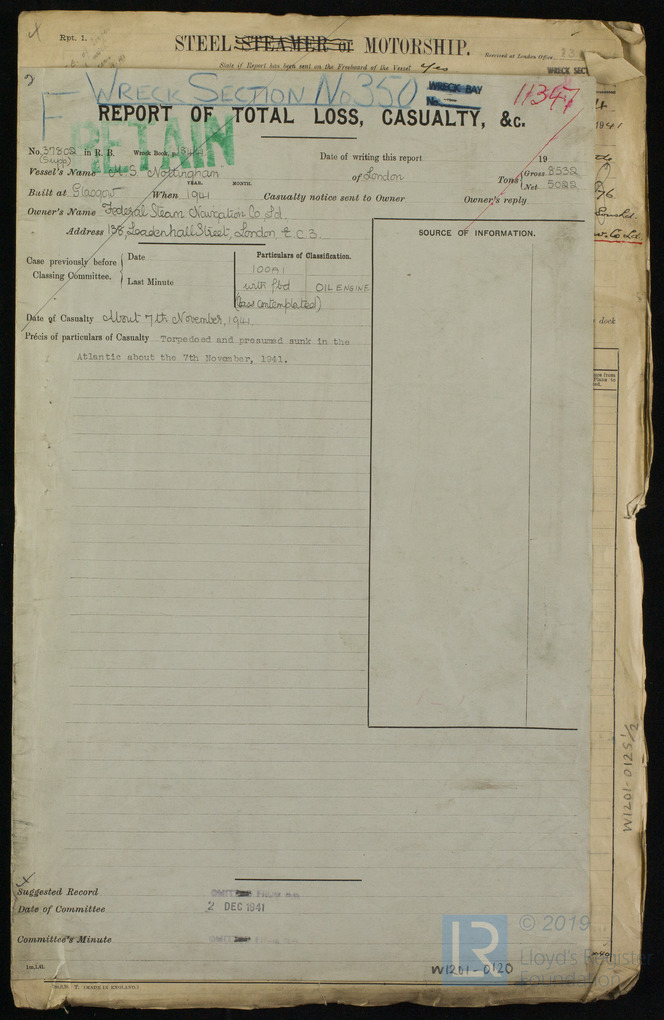 Rpt. 1.
STEEL STEAMER or MOTORSHIP.
Received at London Office
State if Report has been sent on the Freeboard of the Vessel Yes
WRECK SEC
WRECK SECTION No 350
WRECK BAY
No.
11347
REPORT OF TOTAL LOSS, CASUALTY, &c.
RETAIN
No. 37802 in R. B. Wreck Book, p.
(Supp)
Date of writing this report 19
Vessel's Name M.S Nottingham of London
Tons Gross 8532
Net 5022
YEAR. MONTH.
Built at Glasgow When 1941 Casualty notice sent to Owner Owner's reply
Owner's Name Federal Steam Navigation Co. Ltd.
Address 138, Leadenhall Street, London, E.C.3.
SOURCE OF INFORMATION.
Case previously before Classing Committee.
Date
Last Minute
Particulars of Classification.
100A1
with fbd OIL ENGINE
(class contemplated)
Date of Casualty About 7th November, 1941.
Précis of particulars of Casualty Torpedoed and presumed sunk in the
Atlantic about the 7th November, 1941.
dock
Suggested Record
Date of Committee 2 DEC 1941
Committee's Minute
W1201-0125 1/2
W1201-0120
T. (MADE IN ENGLAND.)
LR
© 2019
Lloyd's Register
Foundation